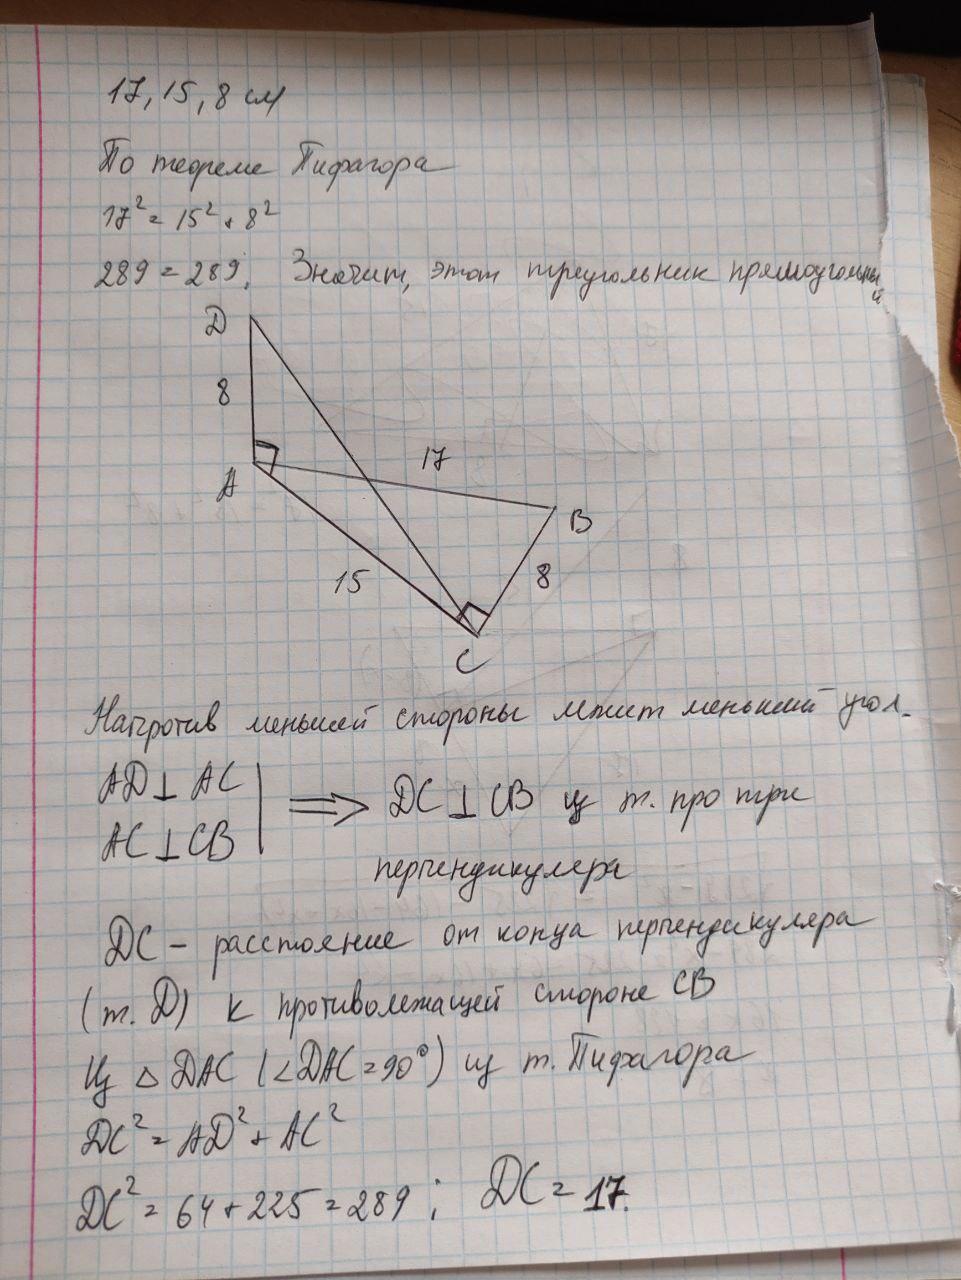 17, 15, 8 см
По теореме Пифагора
17² = 15² + 8²
289 = 289; Значит, этот треугольник прямоугольный
D
8
17
A
B
15
8
C
Напротив меньшей стороны лежит меньший угол.
AD⊥AC
AC⊥CB
⇒ DC⊥CB из т. про три
перпендикуляра
DC – расстояние от конца перпендикуляра
(т. D) к противолежащей стороне CB
Из △ DAC (∠DAC = 90°) из т. Пифагора
DC² = AD² + AC²
DC² = 64 + 225 = 289; DC = 17.